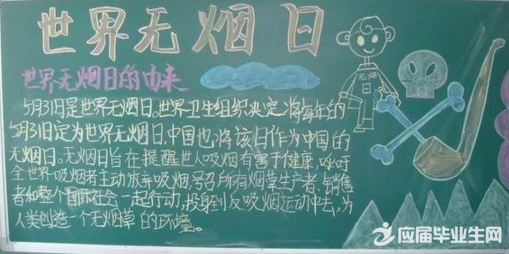 世界无烟日
世界无烟日的由来
5月31日是世界无烟日。世界卫生组织决定将每年的
5月31日定为世界无烟日，中国也将该日作为中国的
无烟日。无烟日旨在提醒世人吸烟有害于健康，呼吁
全世界吸烟者主动放弃吸烟，号召所有烟草生产者、销售
者和整个国际社会一起行动，投身到反吸烟运动中去，为
人类创造一个无烟草的环境。
无烟
应届毕业生网